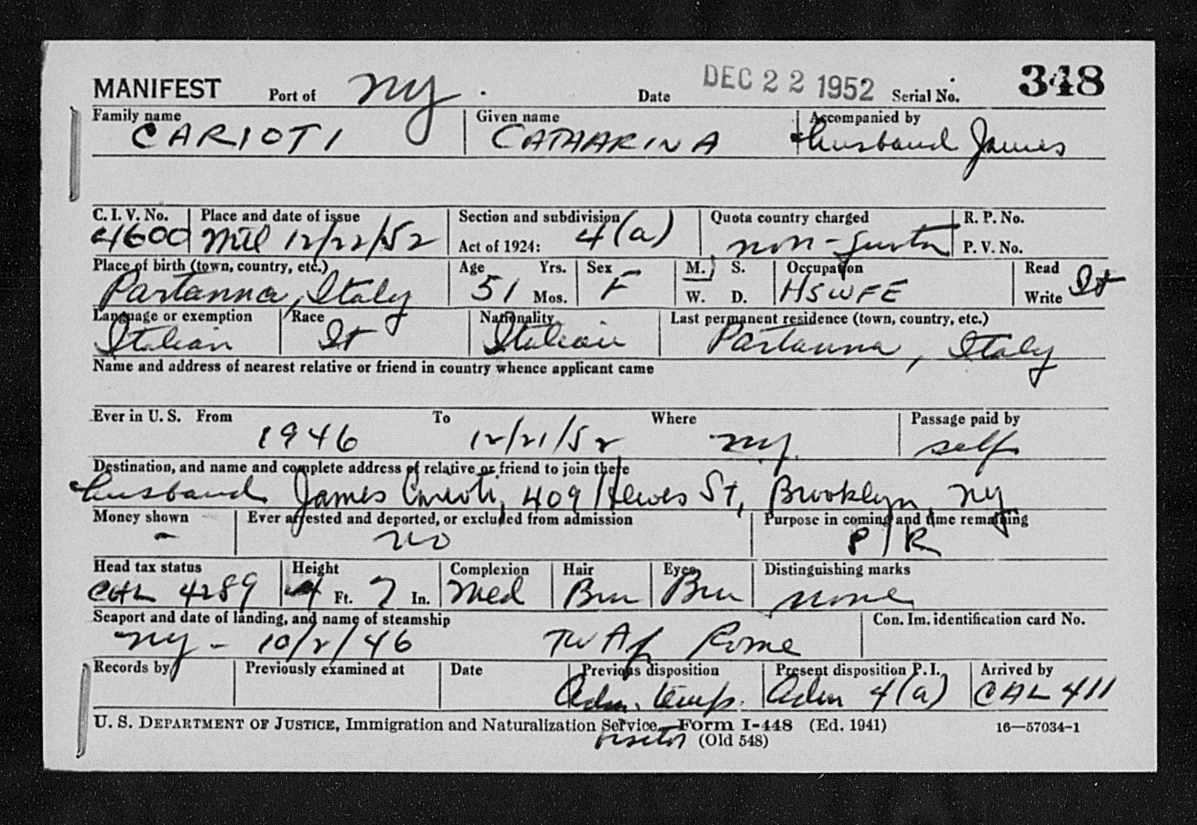 MANIFEST Port of NY. Date DEC 22 1952 Serial No. 348
Family name Given name Accompanied by
CARIOTI CATHARINA husband James
C. I. V. No. Place and date of issue Section and subdivision Quota country charged R. P. No.
4600 Mtl 12/22/52 Act of 1924: 4(a) non-quota P. V. No.
Place of birth (town, country, etc.) Age Yrs. Sex M. S. Occupation Read
Partanna, Italy 51 Mos. F W. D. HSWFE Write It
Language or exemption Race Nationality Last permanent residence (town, country, etc.)
Italian It Italian Partanna, Italy
Name and address of nearest relative or friend in country whence applicant came
Ever in U. S. From To Where Passage paid by
1946 12/21/52 NY. self
Destination, and name and complete address of relative or friend to join there
husband James Carioti, 409 Hewes St, Brooklyn NY
Money shown Ever arrested and deported, or excluded from admission Purpose in coming and time remaining
- no P/R
Head tax status Height Complexion Hair Eyes Distinguishing marks
CAL 4289 4 Ft. 7 In. Med Brn Brn none
Seaport and date of landing, and name of steamship Con. Im. identification card No.
NY - 10/2/46 Rome
Records by Previously examined at Date Previous disposition Present disposition P. I. Arrived by
Adm. temp. Adm 4(a) CAL 411
U. S. DEPARTMENT OF JUSTICE, Immigration and Naturalization Service Form I-448 (Ed. 1941) 16—57034-1
visitor (Old 548)